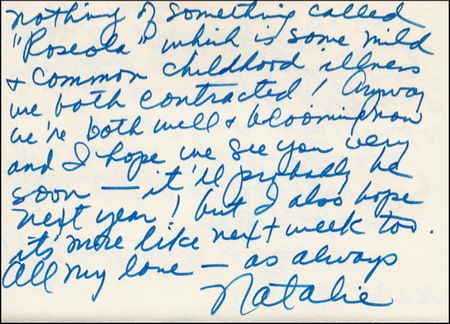 nothing of something called
"Roseola" which is some mild
& common childhood illness
we both contracted! Anyway
we're both well & blooming now
and I hope we see you very
soon — it'll probably be
next year! but I also hope
it's more like next week too.
All my love — as always
Natalie